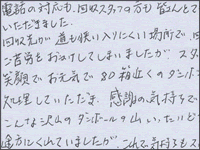 電話の対応も、回収スタッフの方も皆さんとて
いただきました。
回収先が道も狭い入りにくい場所で、回
ご苦労をおかけしましたが、スタ
笑顔でお元気で80箱近くのダンボー
処理していただき、感謝の気持ちで
こんな沢山のダンボールの山いったいど
途方にくれていましたが、これで気持ちもス